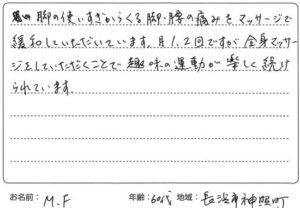 脚の使いすぎからくる脚・腰の痛みをマッサージで
緩和していただいています。月1、2回ですが全身マッサー
ジをしていただくことで趣味の運動が楽しく続け
られています。
お名前: M.F 年齢: 60代 地域: 長浜市神照町